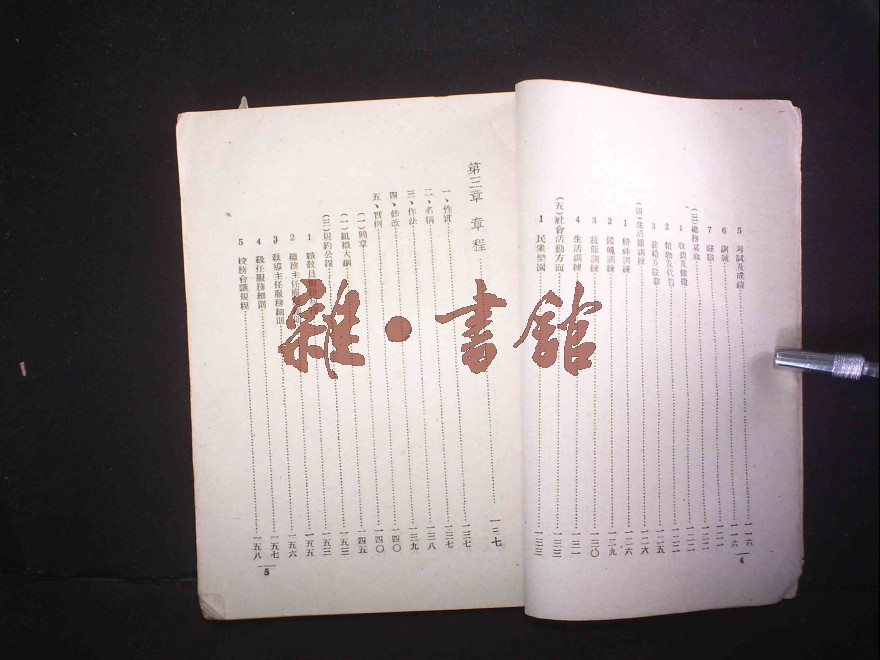 5 考試及成績 一一六
6 訓誡 一一六
7 辭職 一二一
(三)總務方面 一二二
1 收費及徵 一二二
2 購物及代售 一二二
3 發給及發款 一二五
(四)生活訓練 一二六
1 精神訓練 一二六
2 體魄訓練 一二九
3 技能訓練 一三〇
4 生活訓練 一三一
(五)社會活動方面 一三三
1 民衆樂園 一三三
4
第三章 章程 一三七
一、性質 一三七
二、名稱 一三八
三、作法 一三九
四、修改 一四〇
五、實例 一四〇
(一)簡章 一四五
(二)組織大綱 一五三
(三)規約公程 一五三
1 職教員服務 一五五
2 總務主任服 則 一五六
3 教導主任服務細則 一五七
4 級任服務細則 一五八
5 校務會議規程
5
雜·書館